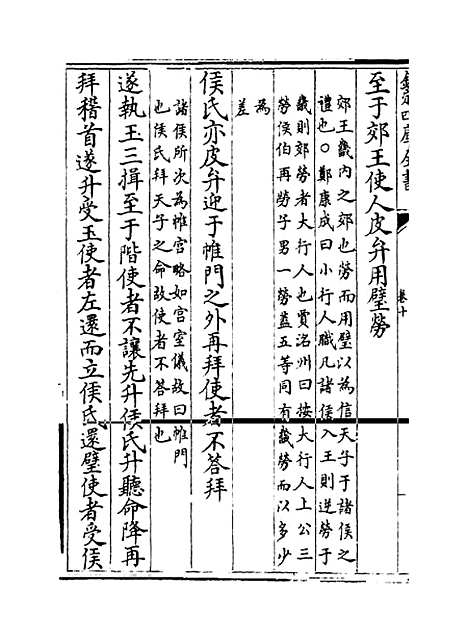 欽定四庫全書
卷十
至于郊王使人皮弁用璧勞
郊王畿内之郊也勞而用璧以為信天子于諸侯之
禮也○鄭康成曰小行人職凡諸侯入王則逆勞于
畿則郊勞者大行人也賈洺州曰按大行人上公三
勞侯伯再勞子男一勞葢五等同有畿勞而以多少
為
差
侯氏亦皮弁迎于帷門之外再拜使者不答拜
諸侯所次為帷宫略如宫室儀故曰帷門
也侯氏拜天子之命故使者不答拜也
遂執玉三揖至于階使者不讓先升侯氏升聽命降再
拜稽首遂升受玉使者左還而立侯氏還璧使者受侯